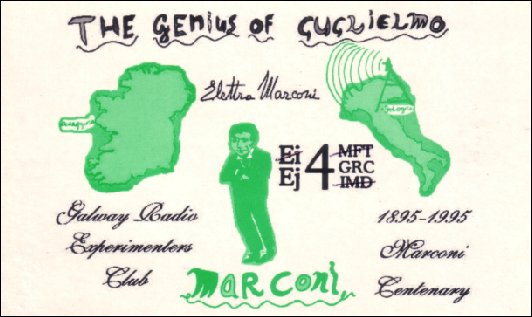 THE GENIUS OF GUGLIELMO
Elettra Marconi
Ei
Ej
4
MFT
GRC
IMD
Galway Radio
Experimenters
Club
1895-1995
Marconi
Centenary
MARCONI